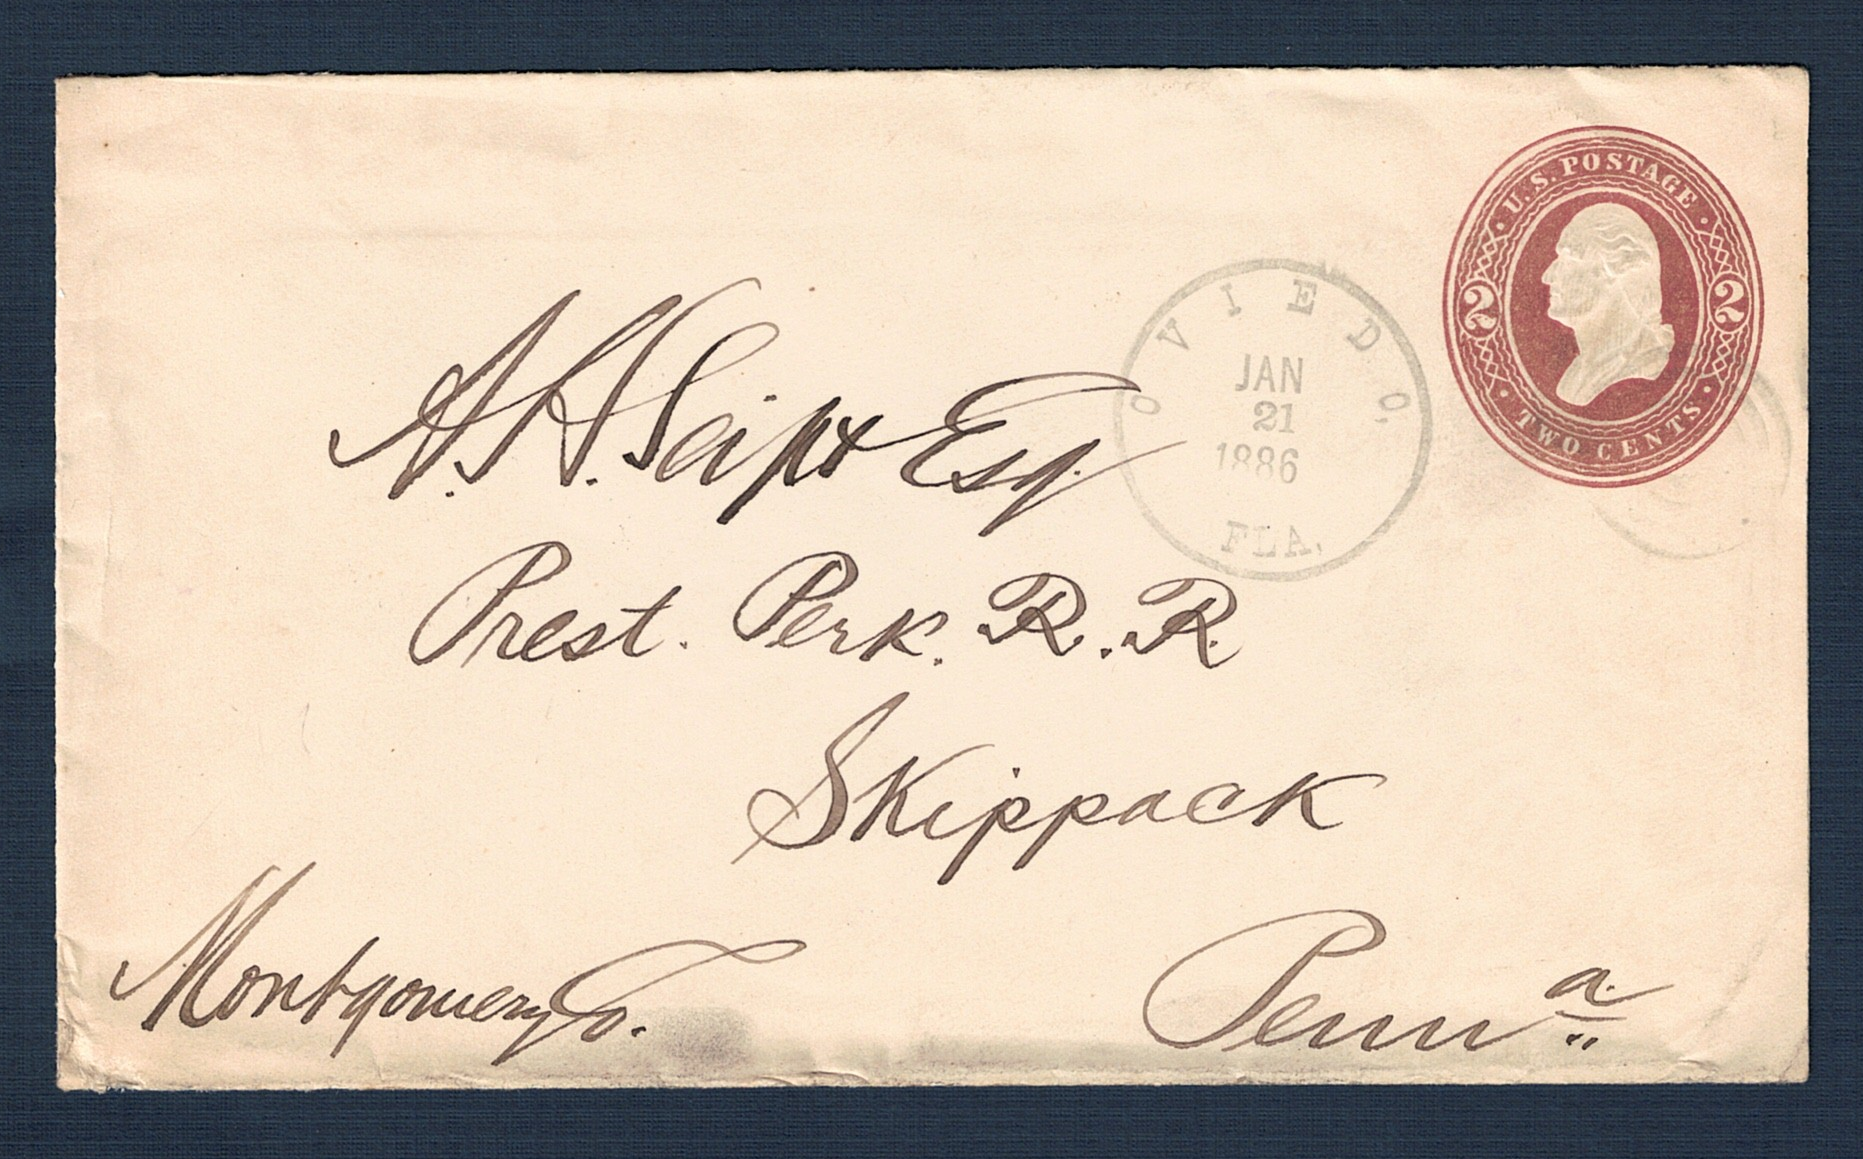 U.S. POSTAGE
2 2
TWO CENTS
OVIEDO,
JAN
21
1886
FLA.
A. H. Seipt Esq.
Prest. Perk. R. R.
Skippack
Montgomery Co.
Penna.